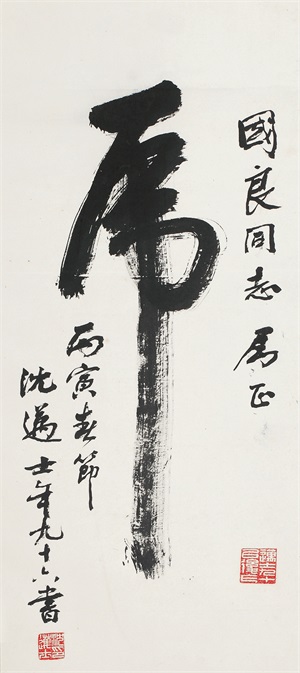 國良同志属正
虎
丙寅春節
沈邁士年九十六書